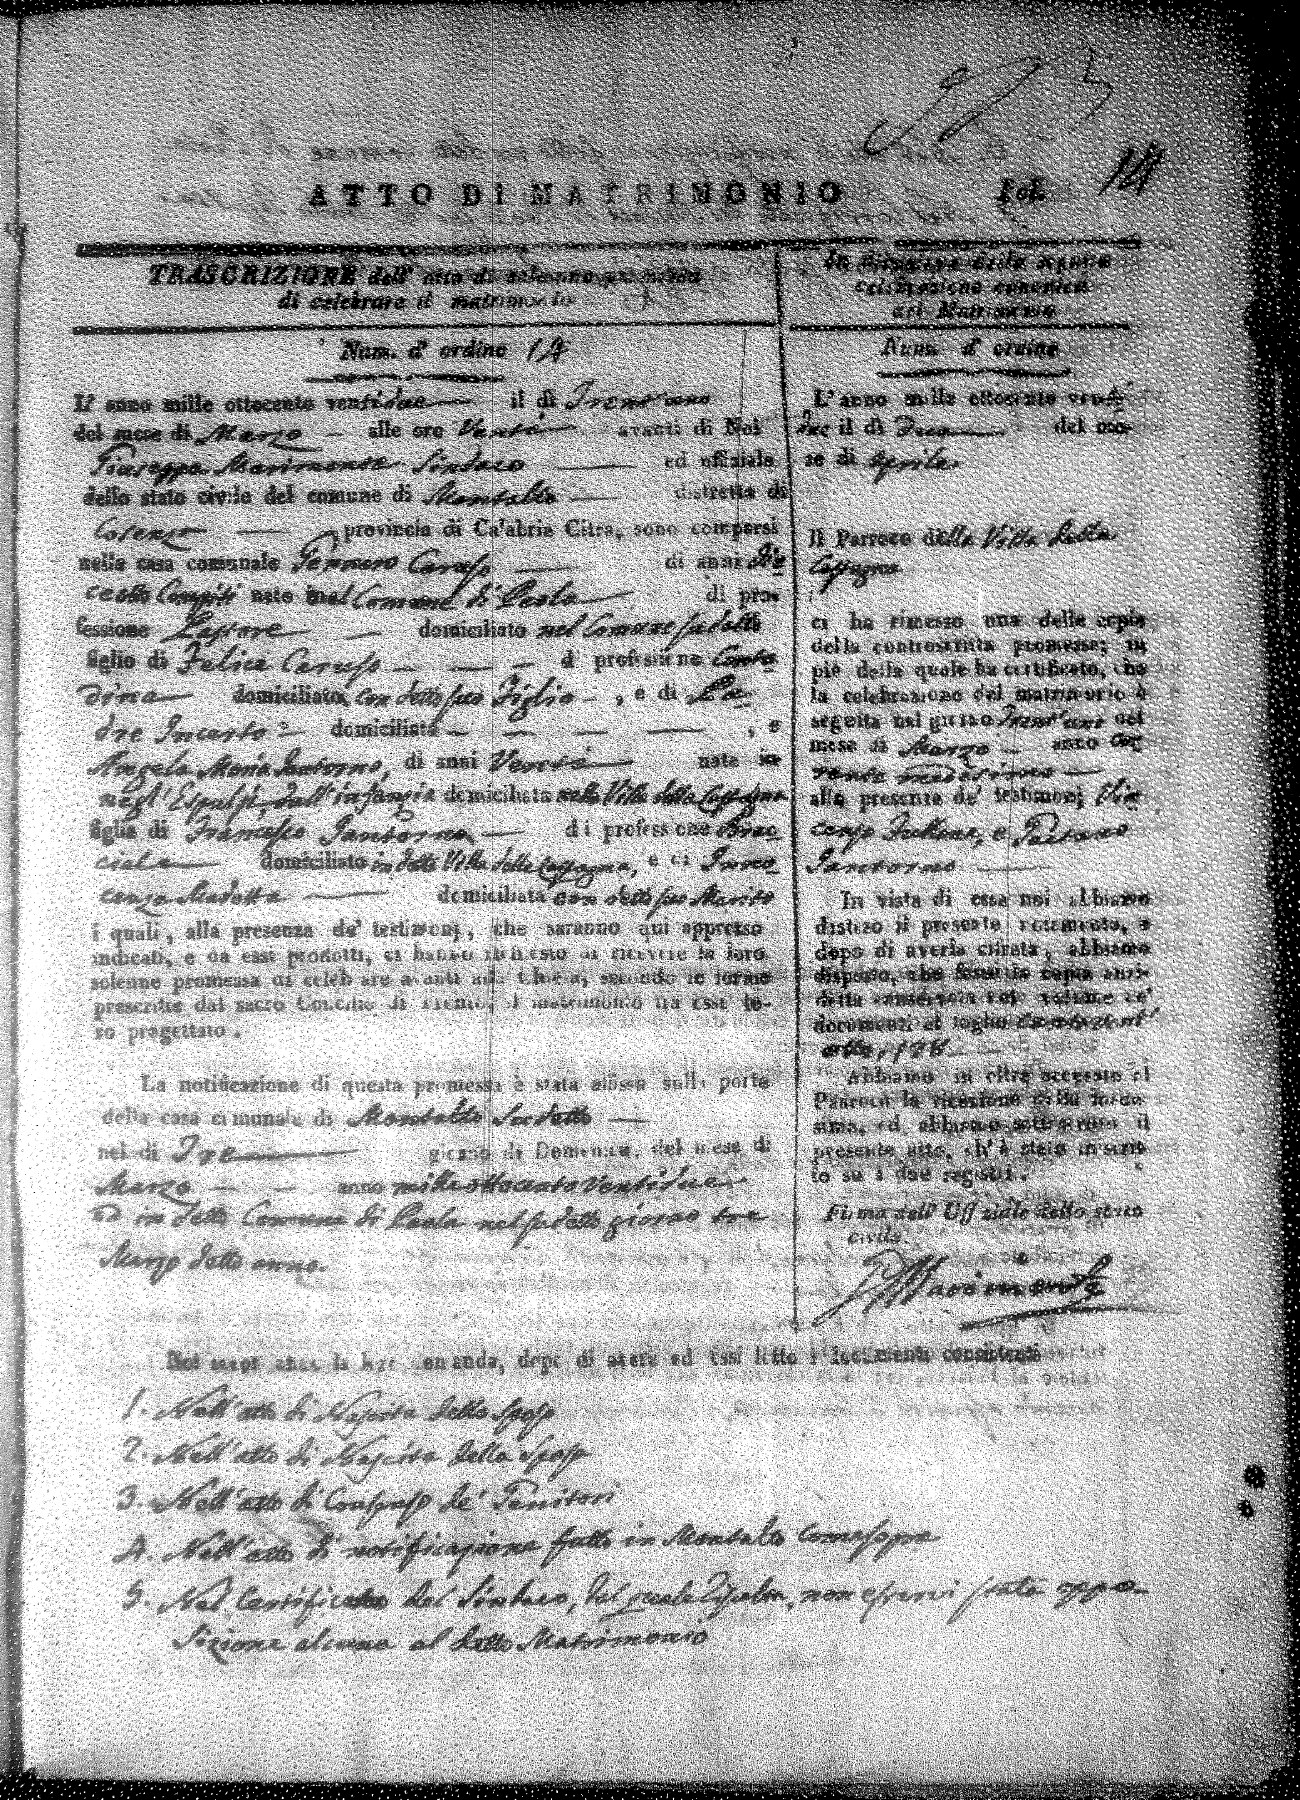 ATTO DI MATRIMONIO Fol. 14
TRASCRIZIONE dell' atto di solenne promessa
di celebrare il matrimonio
Num. d' ordine 14
L' anno mille ottocento ventidue il dì Trent'uno
del mese di Marzo alle ore Venti avanti di Noi
Giuseppe Marimonte Sindaco ed offiziale
dello stato civile del comune di Montalto distretto di
Cosenza provincia di Calabria Citra, sono comparsi
nella casa comunale Gennaro Caruso di anni die
ciotto Compiti nato nel Comune di Paola di pro-
fessione domiciliato nel Comune sudetto
figlio di Felice Caruso di professione Conta
dino domiciliato con detto suo Figlio, e di
domiciliata , e
Angela Maria Santorno, di anni Venti nata in
negl' dall' infanzia domiciliata nella Villa della Castagna
figlia di Francesco Santorno di professione Brac
ciale domiciliato in detta Villa della Castagna, e di Inno
cenza domiciliata con detto suo Marito
i quali, alla presenza de' testimonj, che saranno qui appresso
indicati, e da essi prodotti, ci hanno richiesto di ricevere la loro
solenne promessa di celebrare avanti alla Chiesa, secondo le forme
prescritte dal sacro Concilio di Trento, il matrimonio tra essi lo-
ro progettato.
La notificazione di questa promessa è stata affissa sulla porta
della casa comunale di Montalto Sudetto
nel dì Tre giorno di Domenica, del mese di
Marzo anno mille ottocento ventidue
ed in detto Comune di Paola nel sudetto giorno tre
Marzo detto anno.
In della copia
celebrazione canonica
del Matrimonio
Num. d' ordine
L' anno mille ottocento venti
due il dì Dieci del me-
se di Aprile
Il Parroco della Villa della
Castagna
ci ha rimesso una delle copie
della controscritta promessa; in
piè della quale ha certificato, che
la celebrazione del matrimonio è
seguita nel giorno Trent'uno del
mese di Marzo anno cor
rente medesimo
alla presenza de' testimonj Vin
cenzo e Gaetano
Santorno
In vista di essa noi abbiamo
disteso il presente notamento, e
dopo di averla cifrata, abbiamo
disposto, che fosse la copia anzi-
detta conservata nel volume de'
documenti al foglio
Abbiamo in oltre accusato al
Parroco la ricezione della mede-
sima, ed abbiamo sottoscritto il
presente atto, ch' è stato inscrit-
to su i due registri.
Firma dell' Uffiziale dello stato
civile
Marimonte
Noi dopo di avere ad essi letto i documenti consistenti
1. Nell' atto di Nascita dello Sposo
2. Nell' atto di Nascita della Sposa
3. Nell' atto di Consenso de' Genitori
4. Nell' atto di notificazione fatto in Montalto
5. Nel Certificato del Sindaco, dal quale risulta, non esservi stata oppo-
sizione alcuna al detto Matrimonio